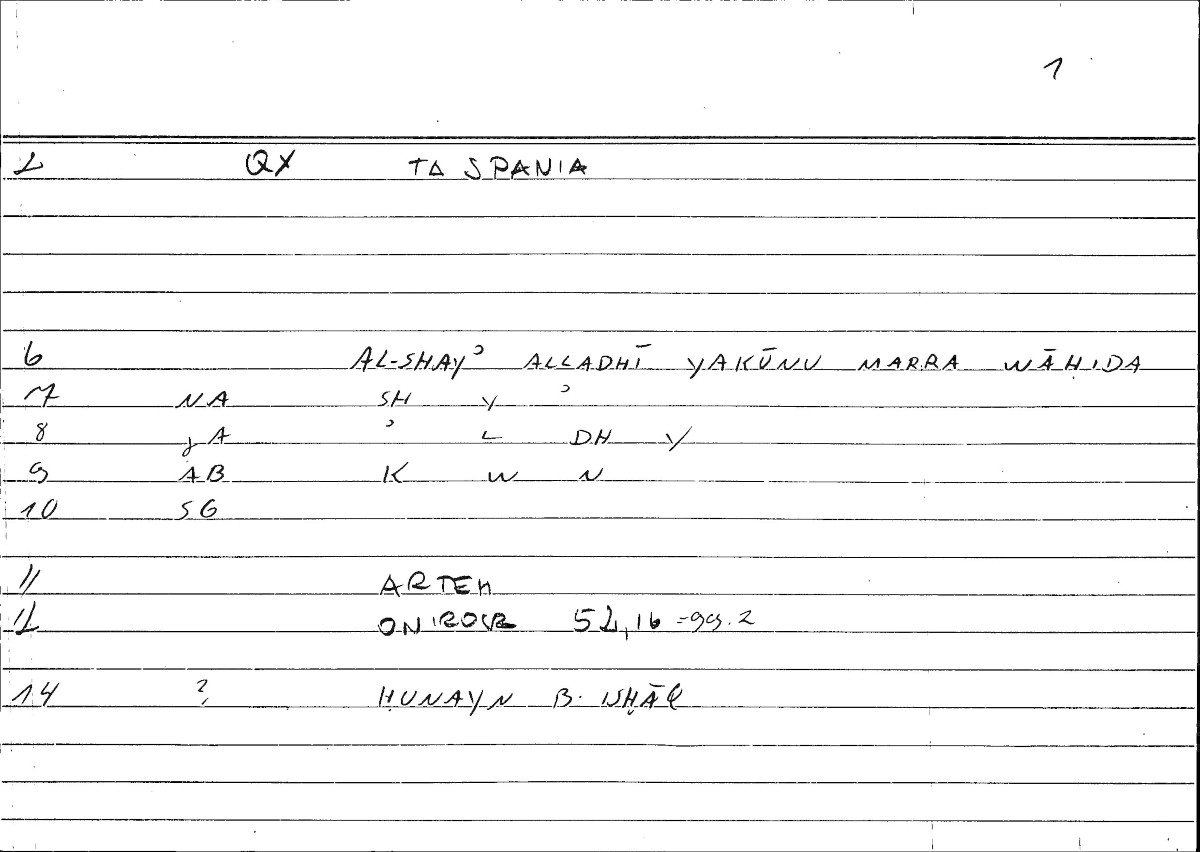 1
2 QX TA SPANIA
6 AL-SHAYʾ ALLADHĪ YAKŪNU MARRA WĀḤIDA
7 NA SH Y ʾ
8 γA ʾ L DH Y
9 AB K W N
10 SG
11 ARTEM
12 ONIROCR 52,16 =99.2
14 ? ḤUNAYN B. ISḤĀQ